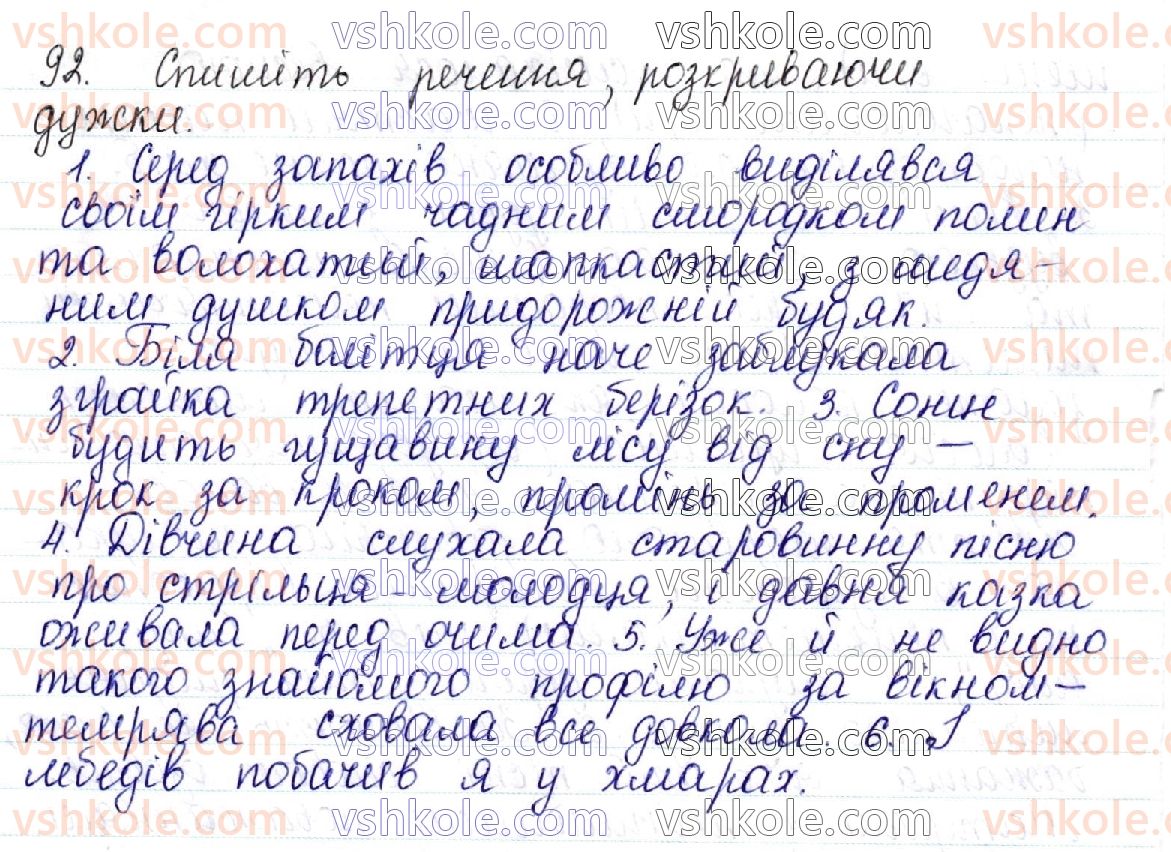 92. Спишіть речення, розкриваючи
дужки.
1. Серед запахів особливо виділявся
своїм гірким чадним смородком полин
та волохатий, шапкастий, з медя-
ним душком придорожній будяк.
2. Біля болітця наче заблукала
зграйка трепетних берізок. 3. Сонце
будить гущавину лісу від сну –
крок за кроком, промінь за променем.
4. Дівчина слухала старовинну пісню
про стрільця-молодця, і давня казка
оживала перед очима. 5. Уже й не видно
такого знайомого профілю за вікном –
темрява сховала все довкола. 6. І
лебедів побачив я у хмарах.
vshkole.com